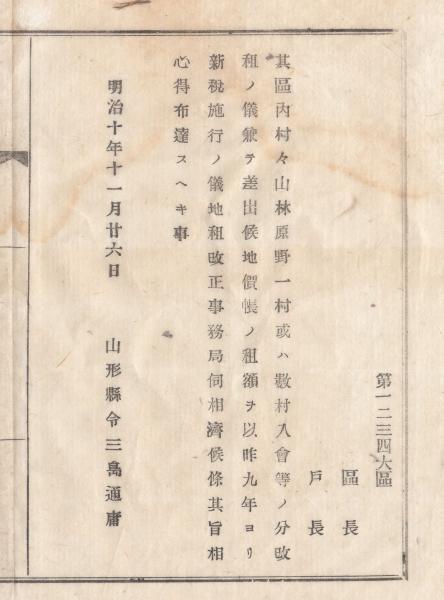 第一二三四大區
區長
戸長
其區內村々山林原野一村或ハ數村入會等ノ分改
租ノ儀兼テ差出候地價帳ノ租額ヲ以昨九年ヨリ
新稅施行ノ儀地租改正事務局伺相濟候條其旨相
心得布達スヘキ事
明治十年十一月廿六日
山形縣令三島通庸